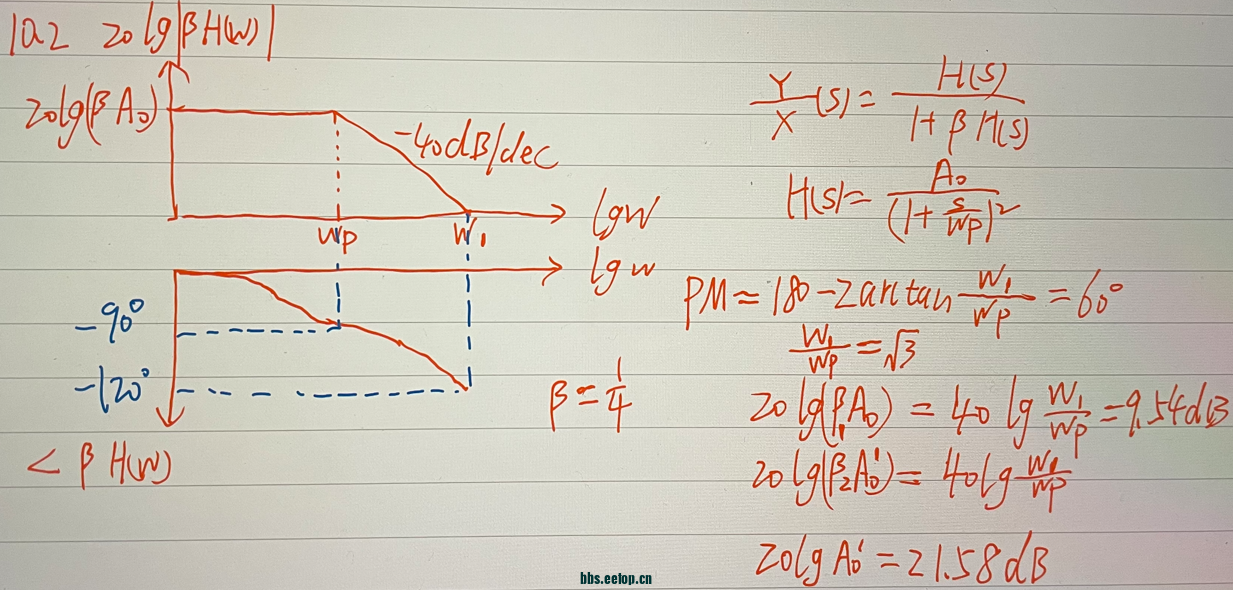 10.2 20lg|βH(w)|
20lg(βA₀)
-40dB/dec
lgw
wp w₁
lgw
-90°
-120°
∠βH(w)
β=1/4
Y/X(s)=H(s)/(1+βH(s))
H(s)=A₀/(1+s/wp)²
PM≈180-2arctan w₁/wp=60°
w₁/wp=√3
20lg(β₁A₀)=40lg w₁/wp=9.54dB
20lg(β₂A₀')=40lg w₁/wp
20lgA₀'=21.58dB
bbs.eetop.cn